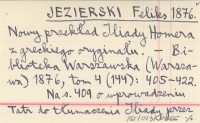 JEZIERSKI Feliks 1876.
Nowy przekład Iliady Homera
z greckiego oryginału. – Bi-
blioteka Warszawska (Warsza-
wa) 1876, tom 4 (144): 405–422.
Na s. 409 o wprowadzeniu
Tatr do tłumaczenia Iliady przez